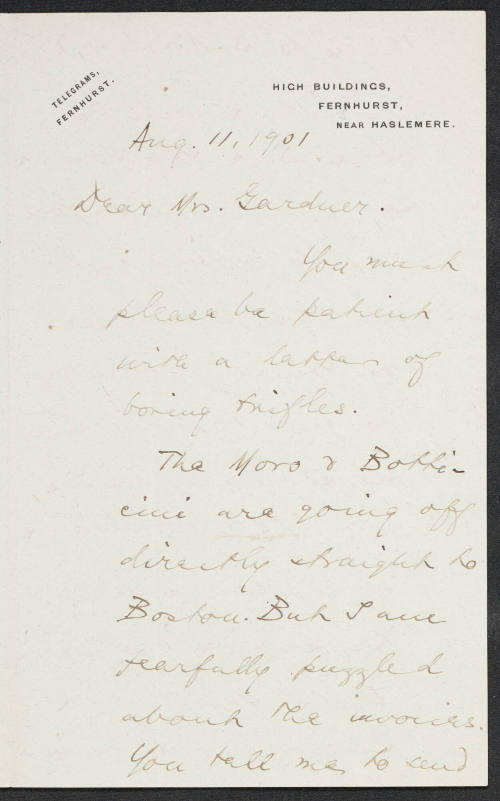 TELEGRAMS,
FERNHURST.
HIGH BUILDINGS,
FERNHURST,
NEAR HASLEMERE.
Aug. 11, 1901
Dear Mrs. Gardner.
You must
please be patient
with a letter of
boring trifles.
The Moro & Botti-
cini are going off
directly straight to
Boston. But I am
fearfully puzzled
about the invoices.
You tell me to send